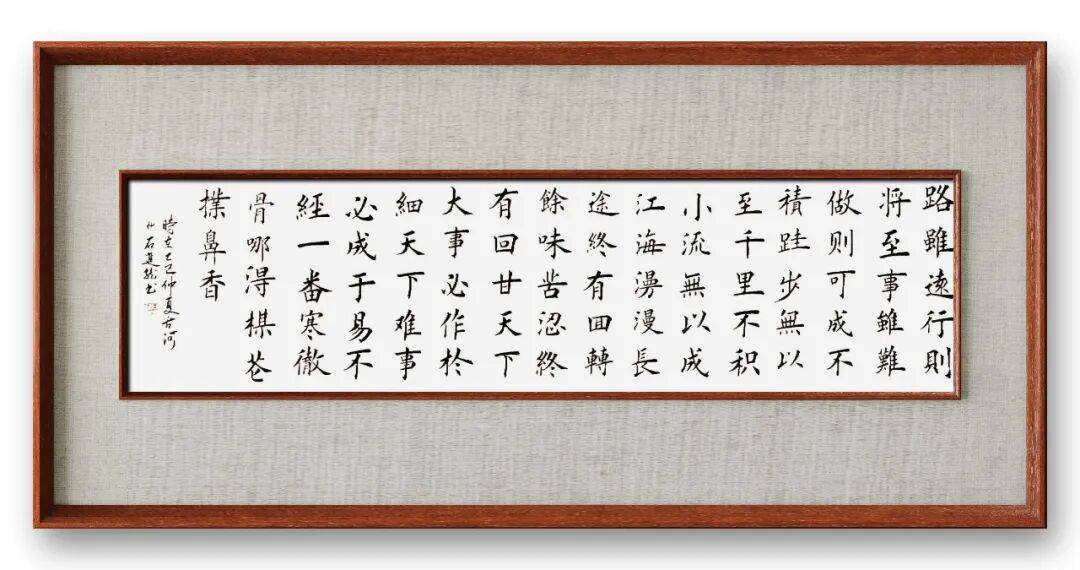 路雖遠行則
将至事雖難
做则可成不
積跬步無以
至千里不积
小流無以成
江海漫漫長
途終有回轉
餘味苦涩終
有回甘天下
大事必作於
細天下难事
必成于易不
經一番寒徹
骨哪得楳花
撲鼻香
時在乙巳仲夏古河
石书